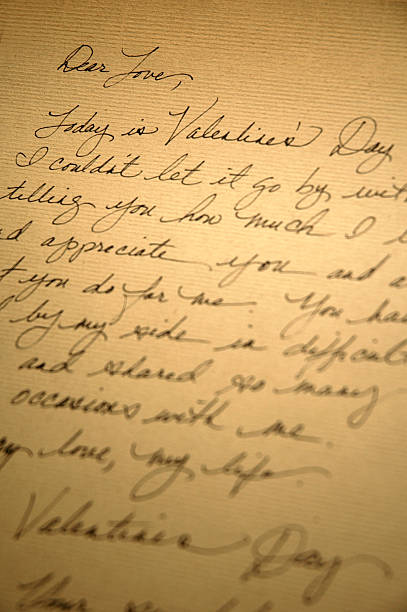 Dear Love,
Today is Valentine's Day
I couldn't let it go by wit
telling you how much I l
d appreciate you and a
t you do for me. You ha
by my side in difficult
and shared so many
occasions with me.
y love, my life.
Valentines Day